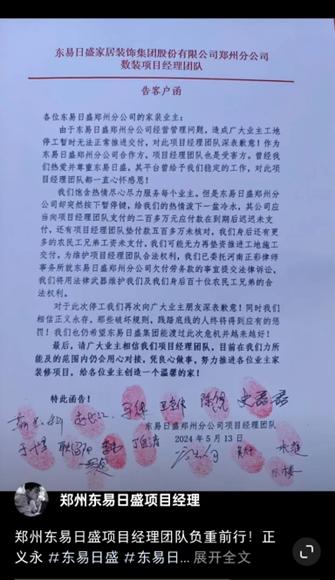 东易日盛家居装饰集团股份有限公司郑州分公司
数装项目经理团队
告客户函
各位东易日盛郑州分公司的家装业主：
由于东易日盛郑州分公司经营管理问题，造成广大业主工地
停工暂时无法正常推进交付，对此项目经理团队深表歉意！作为
东易日盛郑州分公司合作方，项目经理团队也是受害方。曾经我们
热爱并尊重东易日盛，其平台曾给予我们稳定的工作，对此项
目经理团队都一直心怀感恩！
我们饱含热情尽心尽力服务每个业主，但是东易日盛郑州分公
司却突然按下暂停键，给我们的热情泼下一盆冷水，其公司应
当向项目经理团队支付的二百多万元应付款在到期后迟迟未支
付，还有项目经理团队垫付款五百多万未核对。我们身后还有更
多的农民工兄弟工资未支付，我们可能无力再垫资推进工地施工
交付。为维护项目经理团队合法权利，我们已委托河南正彩律师
事务所就东易日盛郑州分公司欠付劳务款的事宜提交法律诉讼，
我们将用法律武器维护我们及我们身后百十位农民工兄弟的合
法权利。
对于此次停工我们再次向广大业主朋友深表歉意！同时我们
相信正义永存，那些破坏规则、践踏底线的人终将得到应有的惩
罚！我们也仍希望东易日盛集团能渡过此次危机并越来越好！
最后，请广大业主相信我们项目经理团队，目前在我们力所
能及的范围内仍会用心对接，凭良心做事，努力推进各位业主家
装修项目，给各位业主创造一个温馨的家！
特此函告！
东易日盛郑州分公司项目经理团队
2024年5月13日
郑州东易日盛项目经理
郑州东易日盛项目经理团队负重前行！正
义永 #东易日盛 #东易日... 展开全文